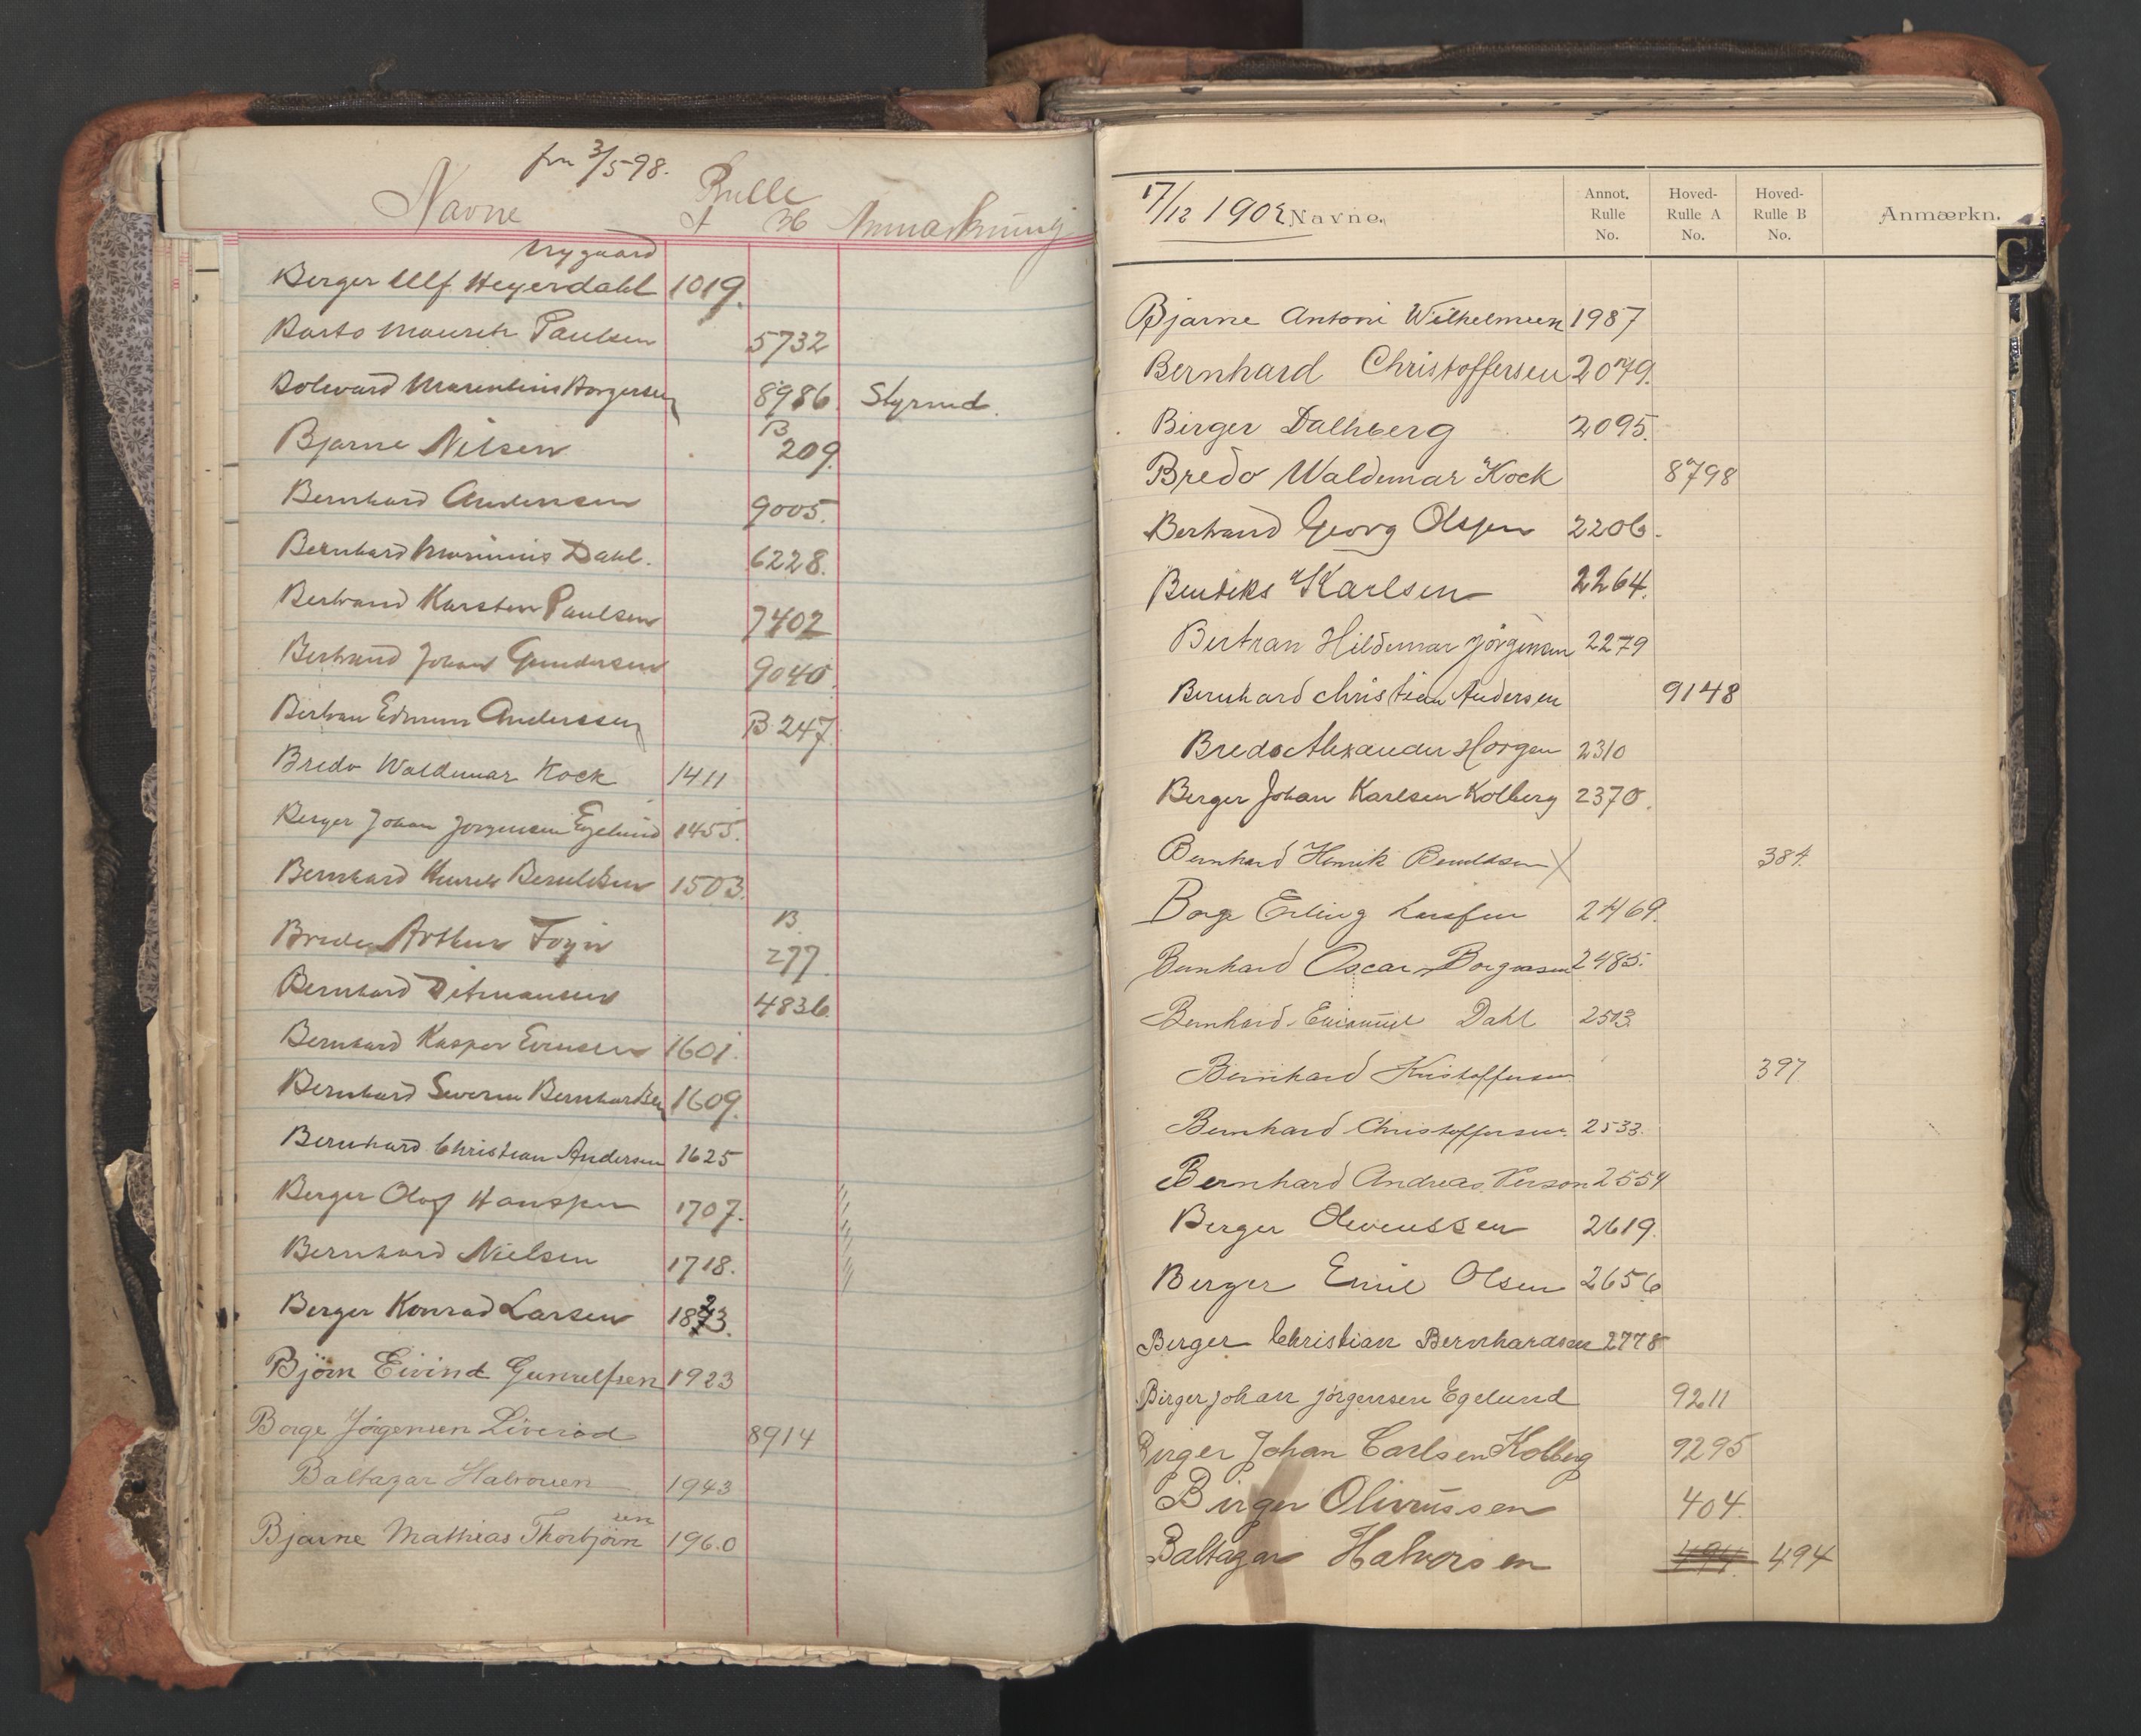 fra 3/5-98.
Navne Rulle
A H Anmærkning
Nygaard
Berger Ulf Heyerdahl 1019.
Paulsen 5732
Borgersen 8986. Styrmd.
Bjarne Nilsen B 209.
Bernhard Andersen 9005.
Bernhard Dahl. 6228.
Bertrand Karsten Paulsen 7402
Bertrand Johan Gundersen 9040.
Bertran Edmun Anderssen B 247.
Bredo Waldemar Kock 1411
Berger Johan Jorgensen Egelund 1455.
Bernhard Henrik Berntdsen 1503.
Brede Arthur Foyn B 277.
Bernhard Ditmansen 4836.
Bernhard Kasper Evensen 1601.
Bernhard Severin Bernhardsen 1609.
Bernhard Christian Andersen 1625
Berger Olaf Hanssen 1707.
Bernhard Nielsen 1718.
Berger Konrad Larsen 1823.
Björn Eivind Gunnulfsen 1923
Borge Jörgensen Liveröd 8914
Baltazar Halvorsen 1943
Bjarne Mathias Thorbjörnsen 1960
17/12 1902 Navne.
Annot. Rulle No.
Hoved-Rulle A No.
Hoved-Rulle B No.
Anmærkn.
C
Bjarne Antoni Wilhelmsen 1987
Bernhard Christoffersen 2079.
Birger Dalhberg 2095.
Bredo Waldemar Kock 8798
Bertrand Georg Olssen 2206.
Karlsen 2264.
Bertran Hildemar Jörgensen 2279
Bernhard Christian Andersen 9148
Bredo Alexander Horgen 2310
Berger Johan Karlsen Kolberg 2370.
Bernhard Henrik Berntdsen X 384.
Borge Erling Larssen 2469.
Bernhard Oscar Borgersen 2485.
Bernhard Emanuel Dahl 2503.
Bernhard Kristoffersen 397
Bernhard Christoffersen. 2533.
Bernhard Andreas Person 2554
Berger Oliveussen 2619.
Berger Emil Olsen 2656
Birger Christian Bernhardsen 2778
Birger Johan Jörgensen Egelund 9211
Birger Johan Carlsen Kolberg 9295
Birger Olivussen 404.
Baltazar Halvorsen 494. 494